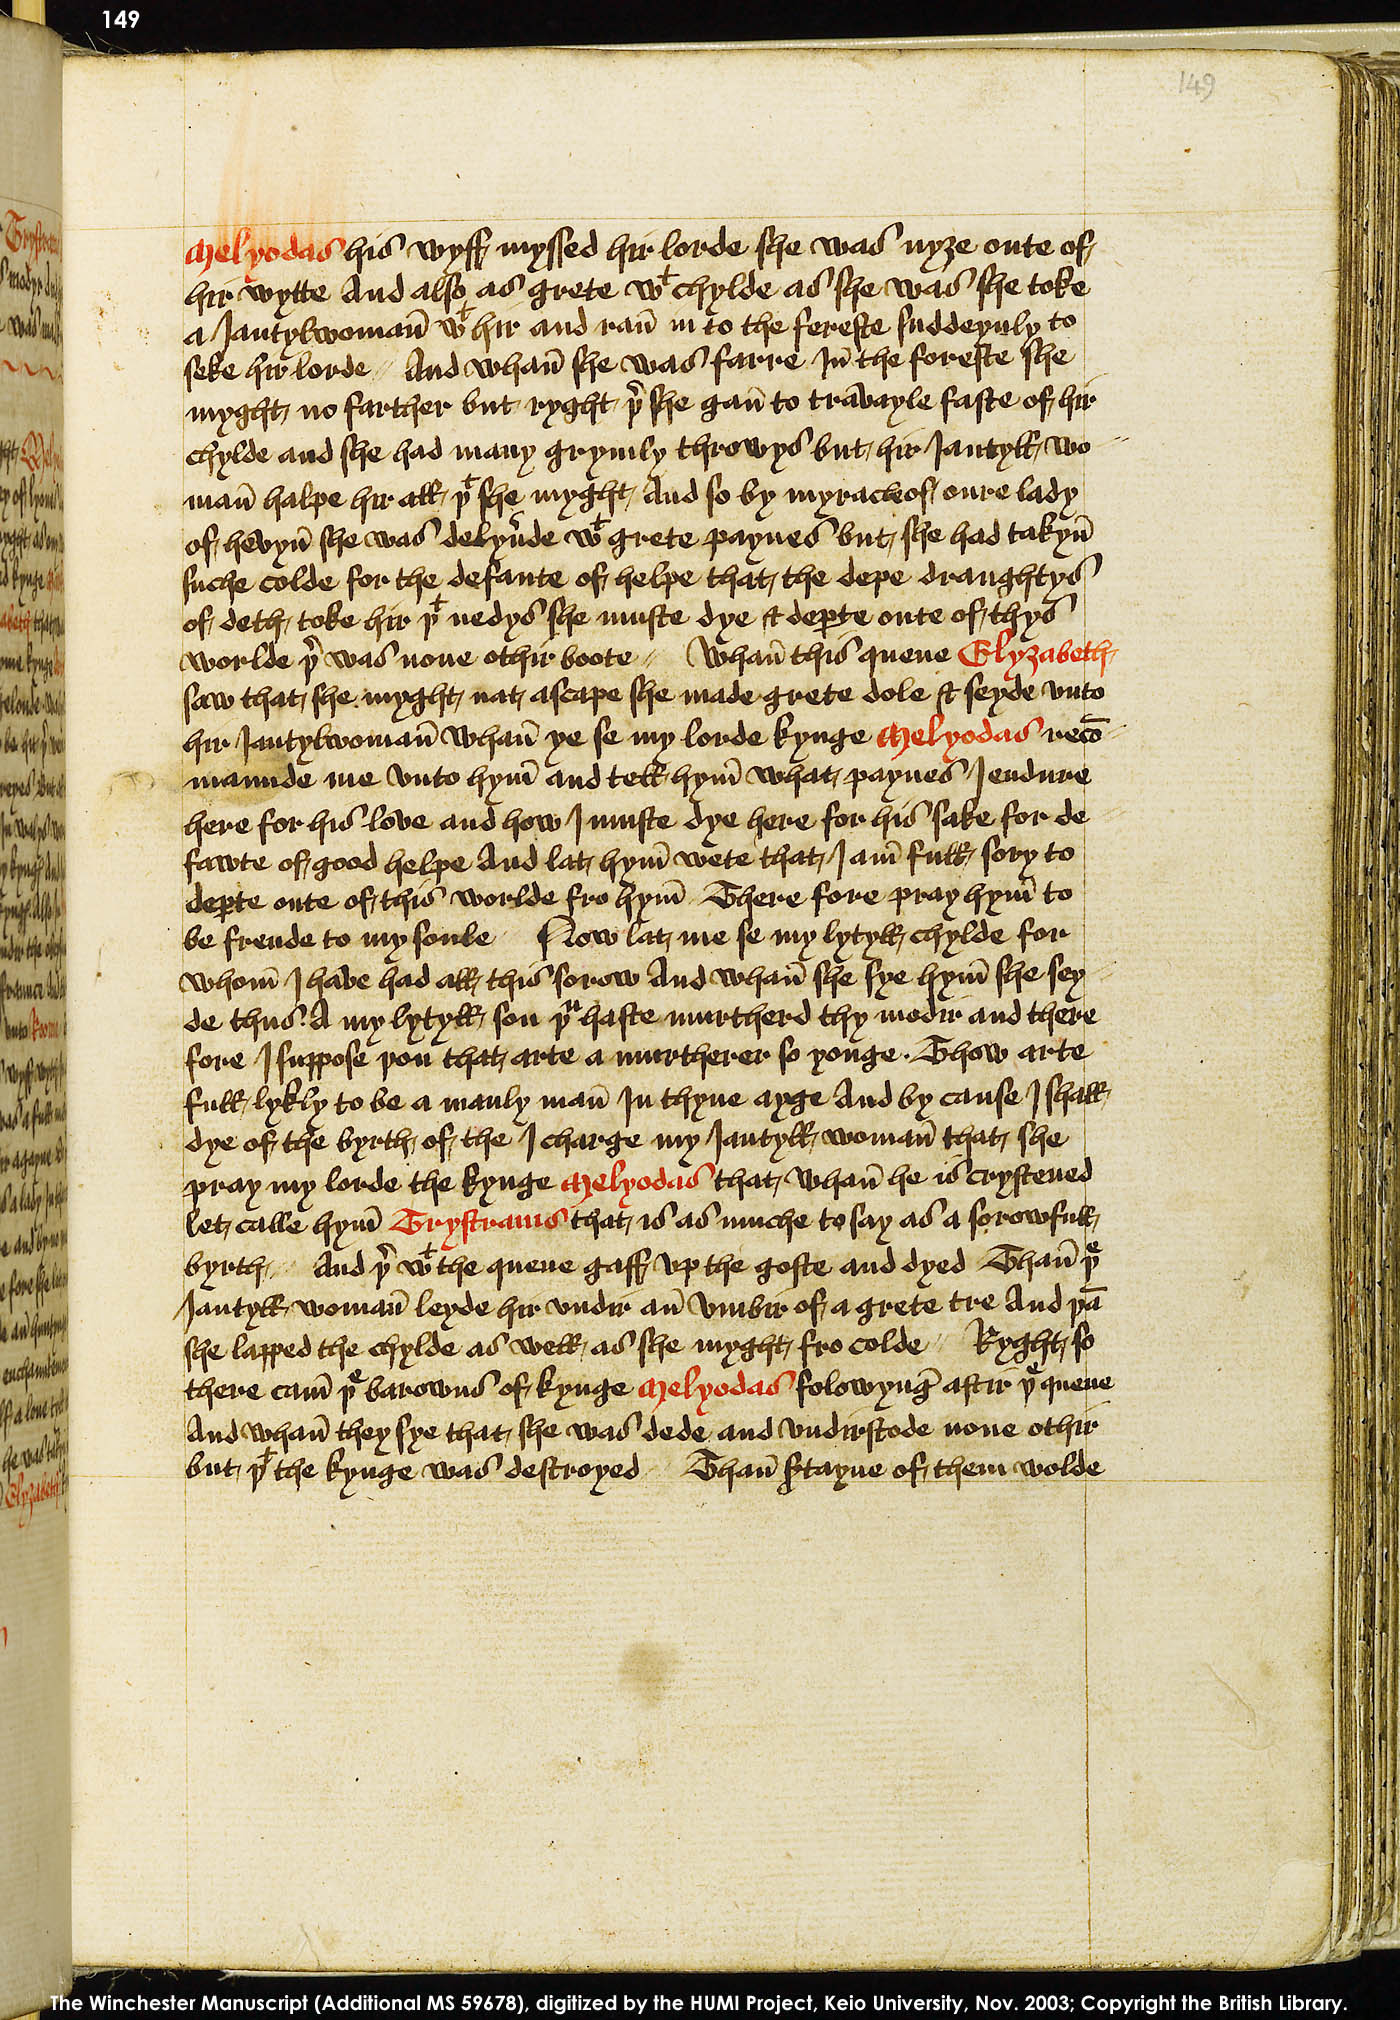 149
149
Melyodas his wyff myssed hir lorde she was nyze oute of
hir wytte And also as grete wt chylde as she was she toke
a Jantylwoman̄ wt hir and ran̄ in to the fereste suddeynly to
seke hir lorde And whan̄ she was farre In̄ the foreste she
myght no farther but ryght þr she gan̄ to travayle faste of hir
chylde and she had many grymly throwys but hir Jantyll wo
man̄ halpe hir all þt she myght And so by myracle of oure lady
of hevyn̄ she was delyuðe wt grete paynes but she had takyn̄
suche colde for the defaute of helpe that the depe draughtys
of deth toke hir þt nedys she muste dye & deꝑte oute of thys
worlde þr was none othir boote Whan̄ this quene Elyzabeth
saw that she myght nat ascape she made grete dole & seyde vnto
hir Jantylwoman̄ whan̄ ye se my lorde kynge Melyodas recō
maunde me vnto hym̄ and tell hym̄ what paynes I endure
here for his love and how I muste dye here for his sake for de
fawte of good helpe And lat hym̄ wete that I am̄ full sory to
deꝑte oute of this worlde fro hym̄ There fore pray hym̄ to
be frende to my soule Now lat me se my lytyll chylde for
whom̄ I have had all this sorow And whan̄ she sye hym̄ she sey
de thus A my lytyll son þu haste murtherd thy modir and there
fore I suppose you that arte a murtherer so yonge. Thow arte
full lykly to be a manly man̄ In thyne ayge And by cause I shall
dye of the byrth of the I charge my Jantyll woman̄ that she
pray my lorde the kynge Melyodas that whan̄ he is crystened
let calle hym̄ Trystrams that is as muche to say as a sorowfull
byrth And þr wt the quene gaff vp the goste and dyed Than̄ þe
Jantyll woman̄ leyde hir vndir an̄ vmbir of a grete tre And þā
she lapped the chylde as well as she myght fro colde Ryght so
there cam̄ þe barowns of kynge Melyodas folowyng aftir þe quene
And whan̄ they sye that she was dede and vndirstode none othir
but þt the kynge was destroyed Than̄ ꝯtayne of them wolde
The Winchester Manuscript (Additional MS 59678), digitized by the HUMI Project, Keio University, Nov. 2003; Copyright the British Library.